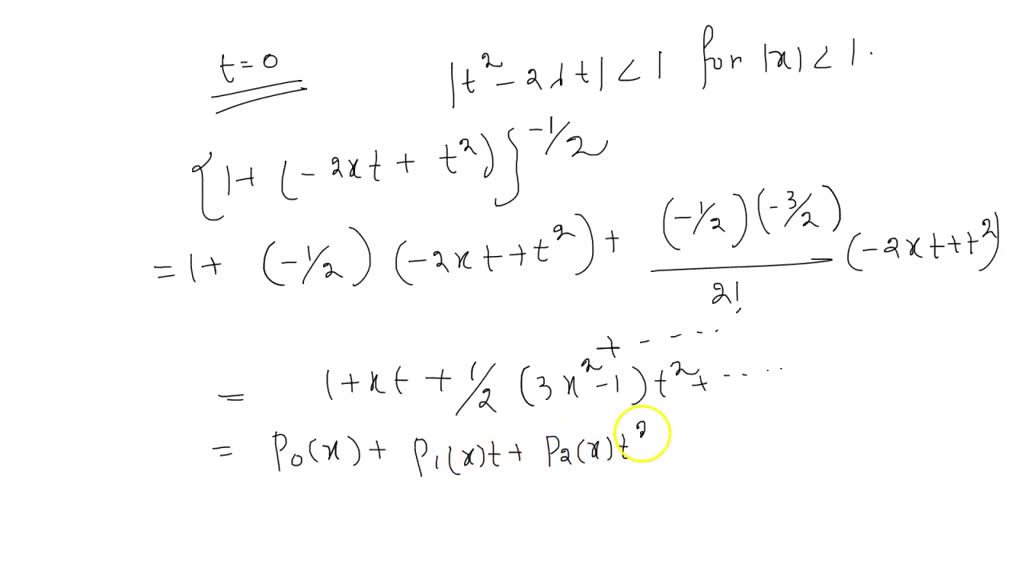 t=0 |t² - 2xt| < 1 for |x| < 1.
{1+ (-2xt + t²)}^-1/2
= 1+ (-1/2) (-2xt+t²) + (-1/2)(-3/2)/2! (-2xt+t²)²
+ ----..
= 1+xt + 1/2 (3x²-1)t²+ ----..
= P₀(x) + P₁(x)t + P₂(x)t²